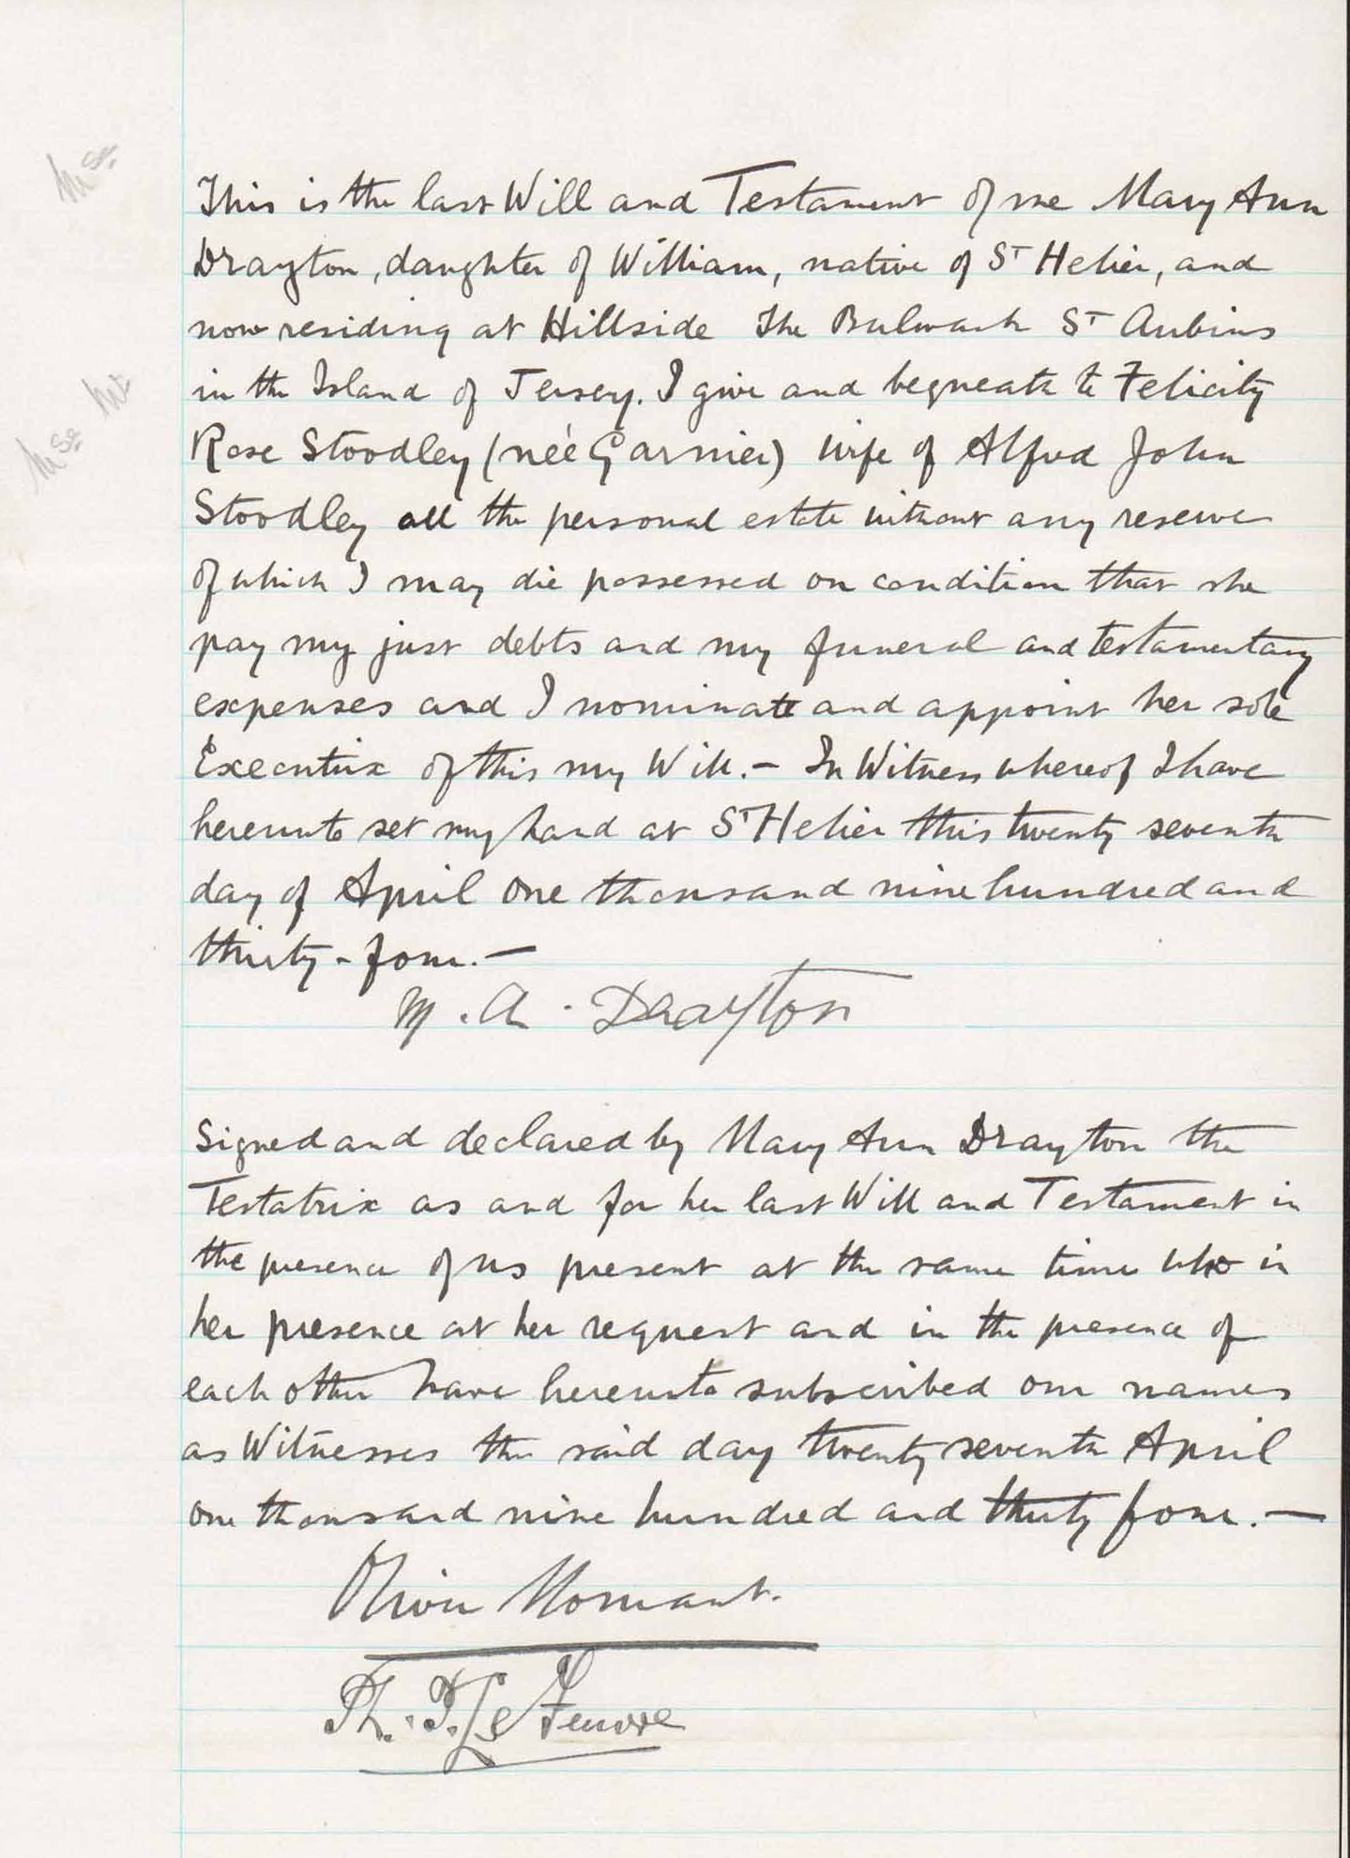 This is the last Will and Testament of me Mary Ann
Drayton, daughter of William, native of St Helier, and
now residing at Hillside The Bulwark St Aubins
in the Island of Jersey. I give and bequeath to Felicity
Rose Stoodley (née Garnier) wife of Alfred John
Stoodley all the personal estate without any reserve
of which I may die possessed on condition that she
pay my just debts and my funeral and testamentary
expenses and I nominate and appoint her sole
Executrix of this my Will.— In Witness whereof I have
hereunto set my hand at St Helier this twenty seventh
day of April one thousand nine hundred and
thirty-four.—
M. A. Drayton
Signed and declared by Mary Ann Drayton the
Testatrix as and for her last Will and Testament in
the presence of us present at the same time who in
her presence at her request and in the presence of
each other have hereunto subscribed our names
as Witnesses the said day twenty seventh April
one thousand nine hundred and thirty four.—
Oliver Mourant.
Th. F. Le Feuvre